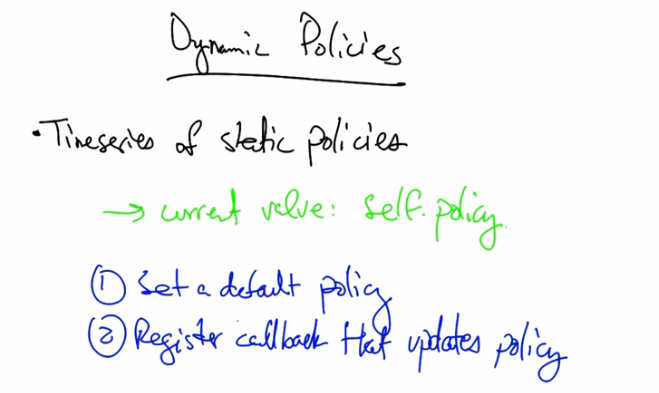 Dynamic Policies
• Timeseries of static policies
→ current value: self.policy
① Set a default policy
② Register callback that updates policy